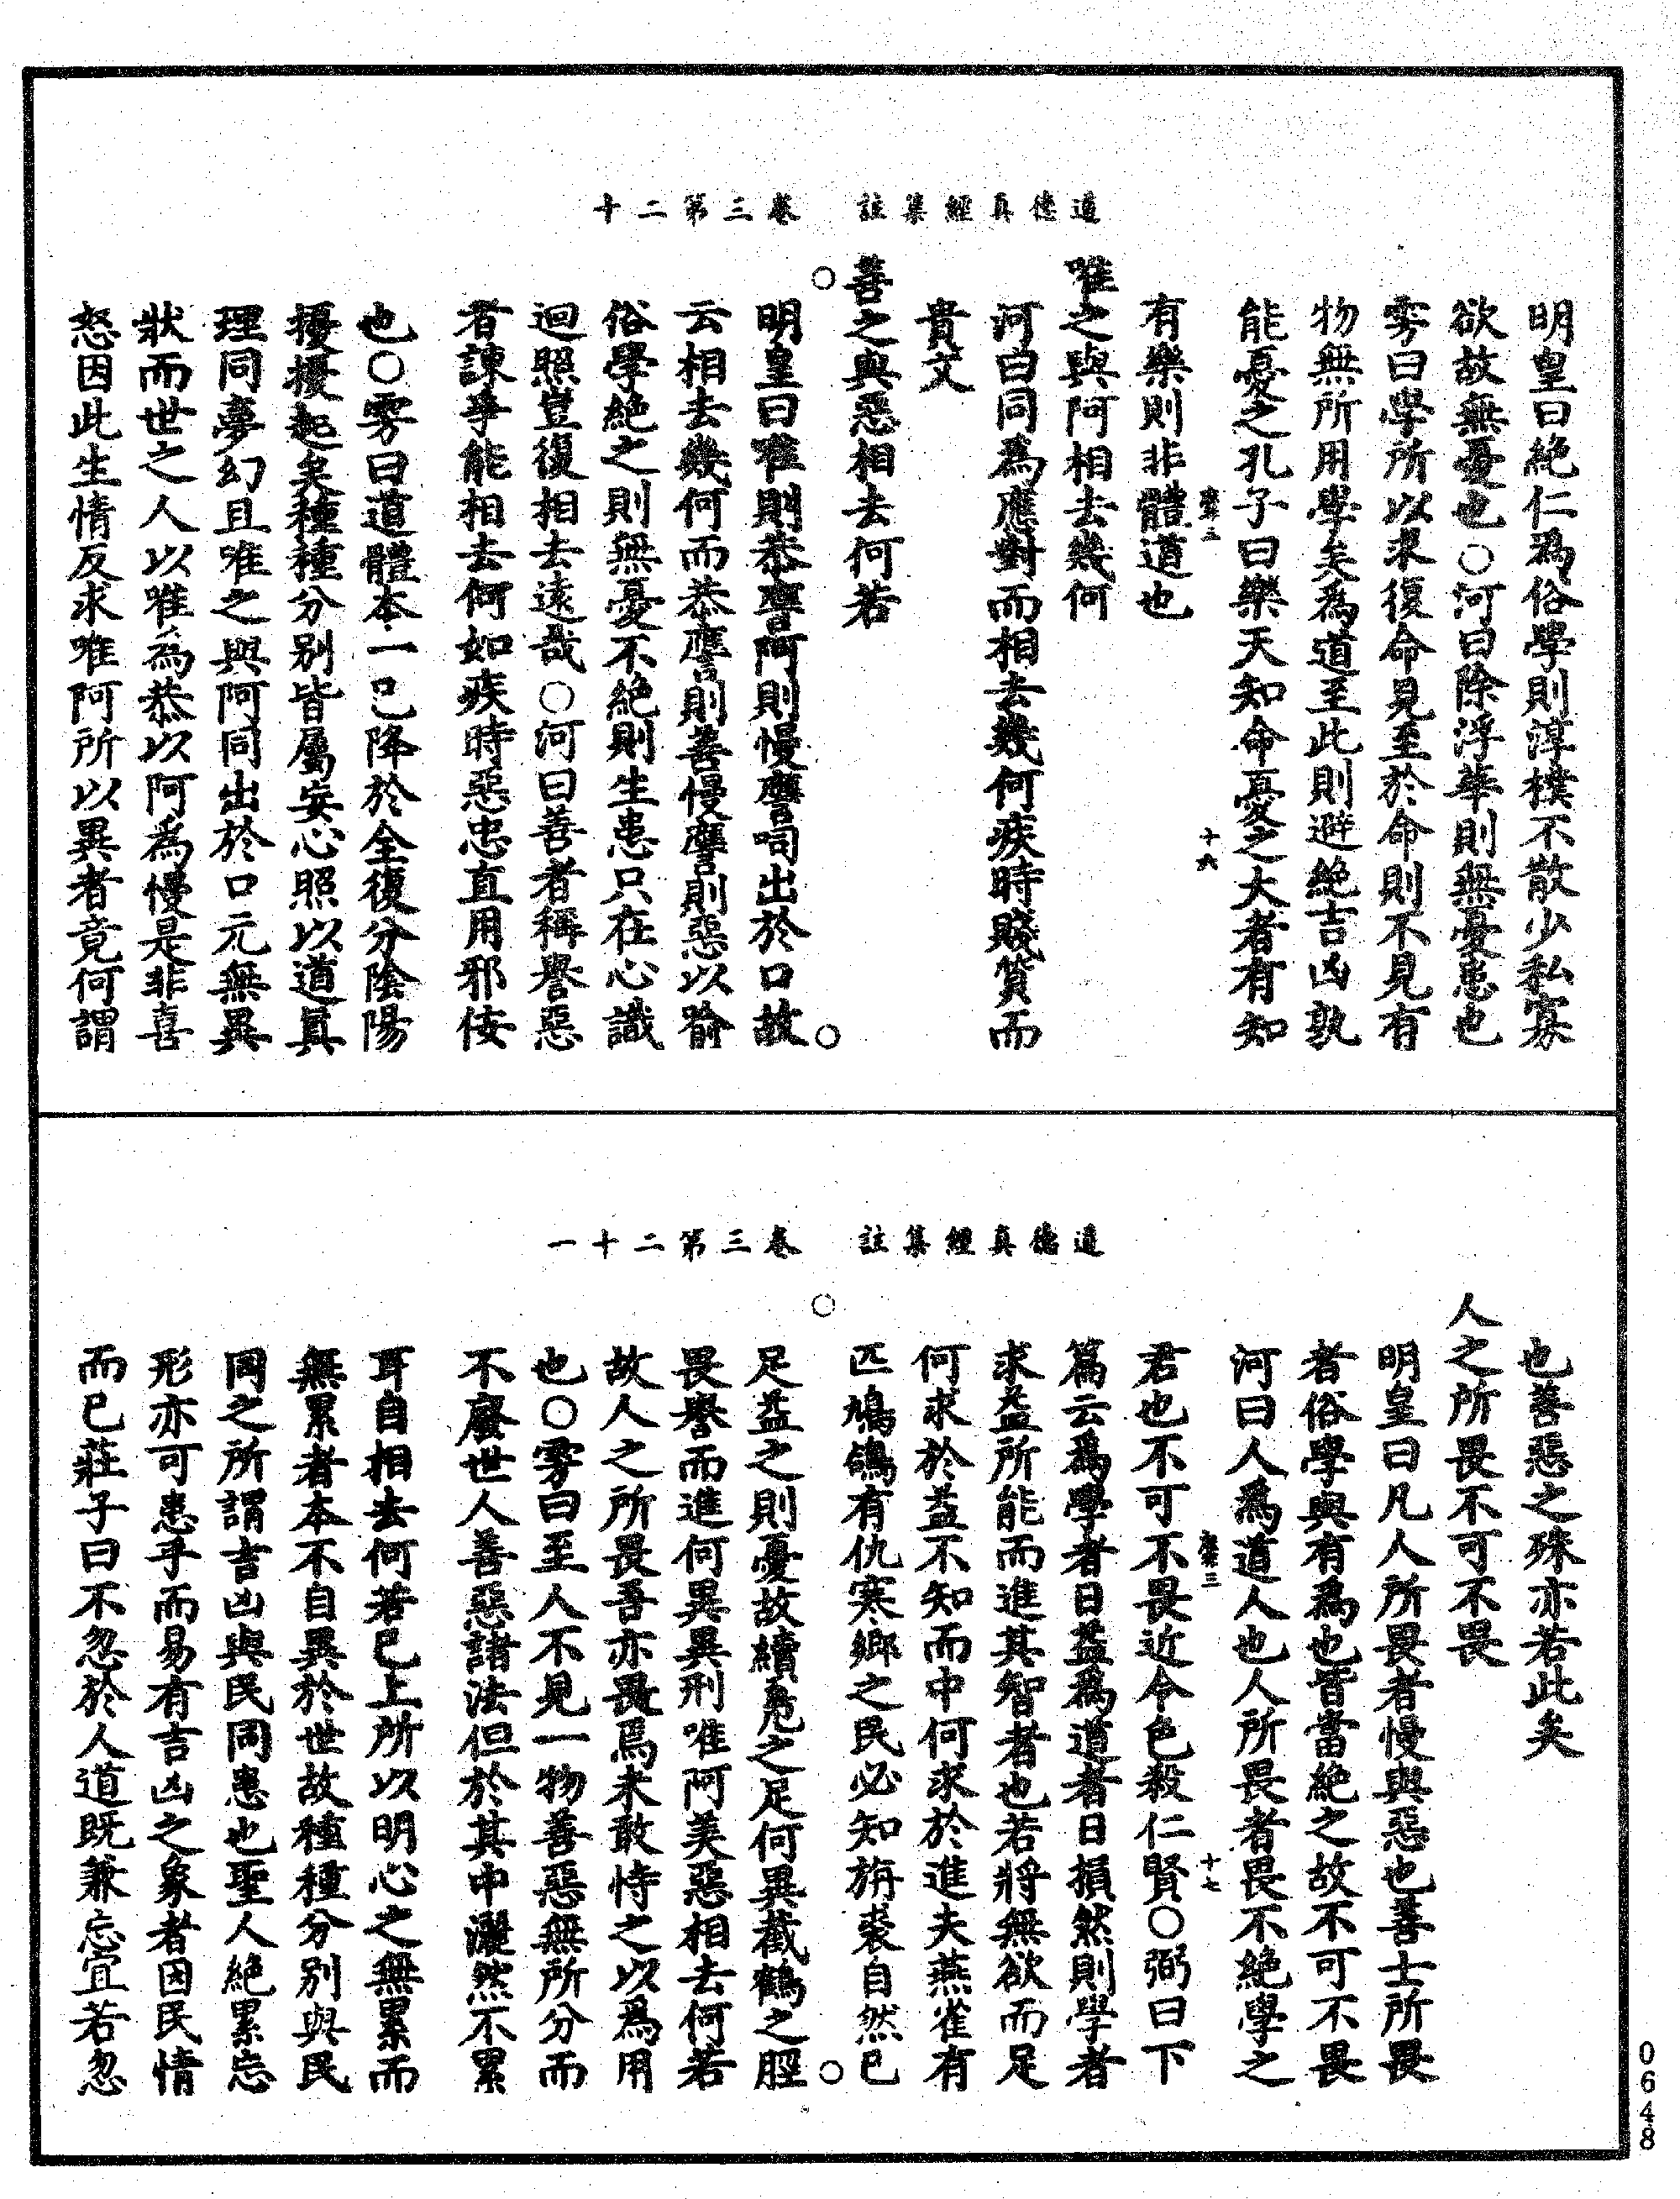 道德真經集註　卷三第二十
明皇曰絕仁為俗學則淳樸不散少私寡
欲故無憂也○河曰除浮華則無憂患也
雱曰學所以求復命見至於命則不見有
物無所用學矣為道至此則避絕吉凶孰
能憂之孔子曰樂天知命憂之大者有知
三　十六
有樂則非體道也
唯之與阿相去幾何
河曰同為應對而相去幾何疾時賤質而
貴文
善之與惡相去何若
○　○
明皇曰唯則恭譍阿則慢譍同出於口故
云相去幾何而恭譍則善慢譍則惡以喻
俗學絕之則無憂不絕則生患只在心識
迴照豈復相去遠哉○河曰善者稱譽惡
者諫爭能相去何如疾時惡忠直用邪佞
也○雱曰道體本一已降於全復分陰陽
擾擾起矣種種分別皆屬妄心照以道真
理同夢幻且唯之與阿同出於口元無異
狀而世之人以唯為恭以阿為慢是非喜
怒因此生情反求唯阿所以異者竟何謂
道德真經集註　卷三第二十一
也善惡之殊亦若此矣
人之所畏不可不畏
明皇曰凡人所畏者慢與惡也善士所畏
者俗學與有為也皆當絕之故不可不畏
河曰人為道人也人所畏者畏不絕學之
三　十七
君也不可不畏近令色殺仁賢○弼曰下
篇云為學者日益為道者日損然則學者
求益所能而進其智者也若將無欲而足
何求於益不知而中何求於進夫燕雀有
匹鳩鴿有仇寒鄉之民必知旃裘自然已
○　○
足益之則憂故續鳧之足何異截鶴之脛
畏譽而進何異畏刑唯阿美惡相去何若
故人之所畏吾亦畏焉未敢恃之以為用
也○雱曰至人不見一物善惡無所分而
不廢世人善惡諸法但於其中灑然不累
耳自相去何若已上所以明心之無累而
無累者本不自異於世故種種分別與民
同之所謂吉凶與民同患也聖人絕累忘
形亦可患乎而易有吉凶之象者因民情
而已莊子曰不忽於人道既兼忘宜若忽
0648